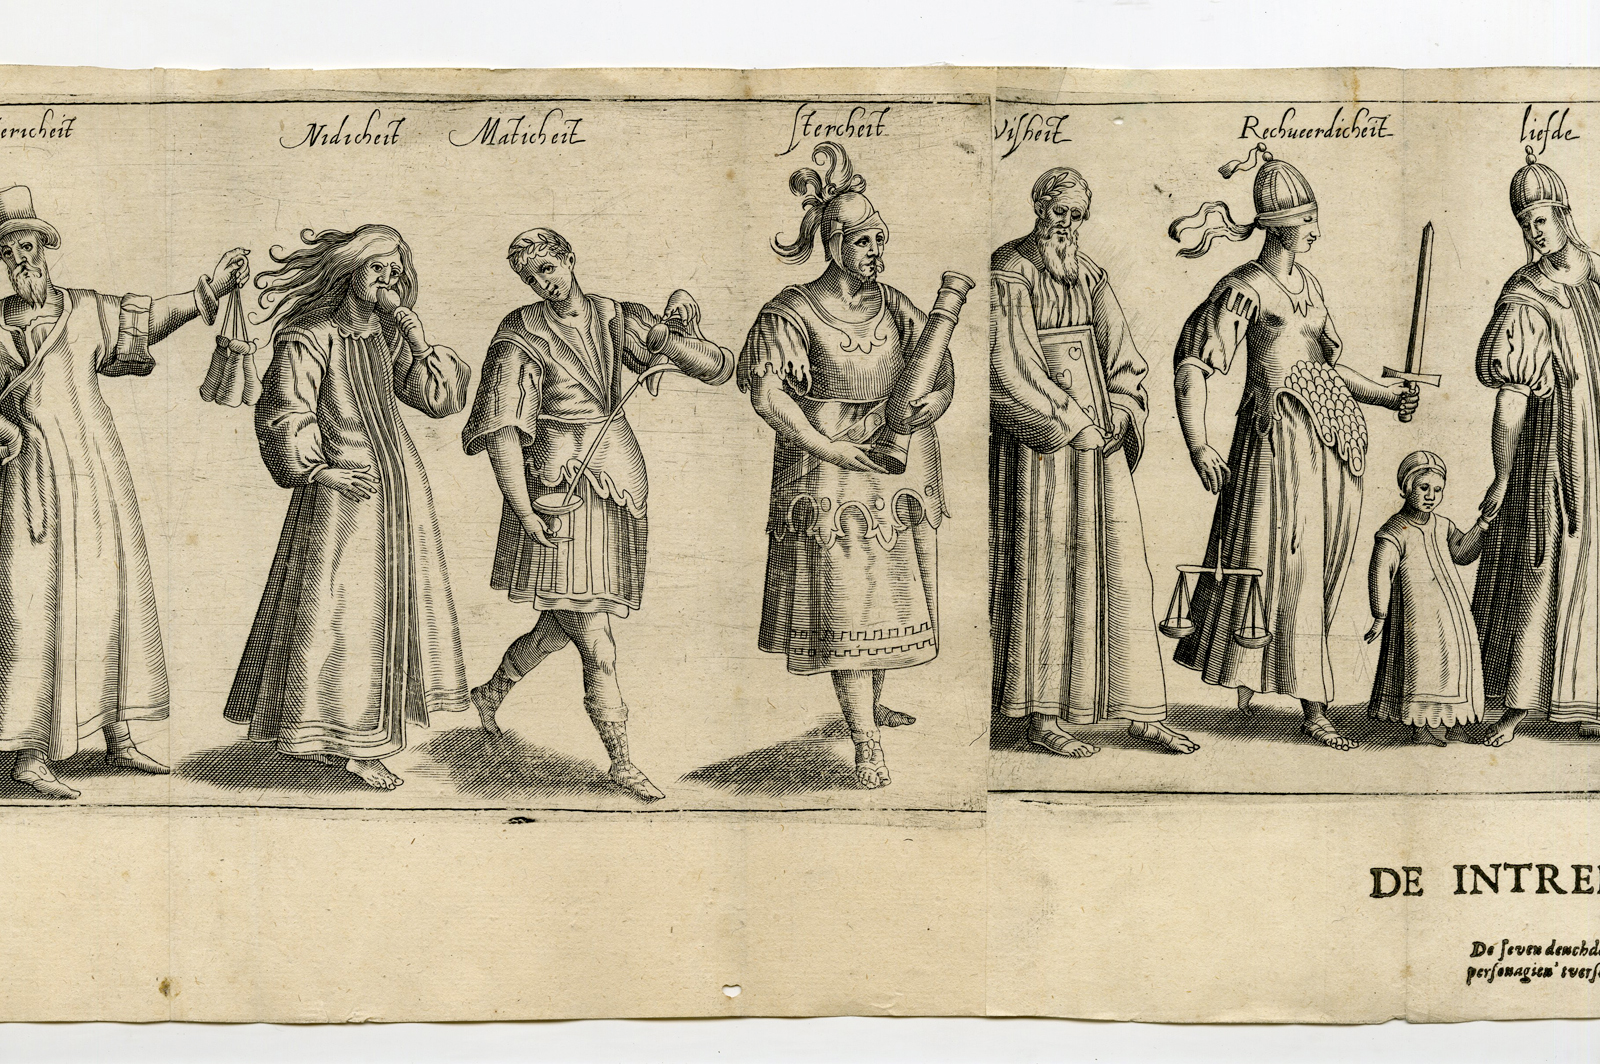 ericheit
Nidicheit
Maticheit
ſtercheit
Viſheit
Rechueerdicheit
liefde
DE INTRE
De ſeven denchd
perſonagien